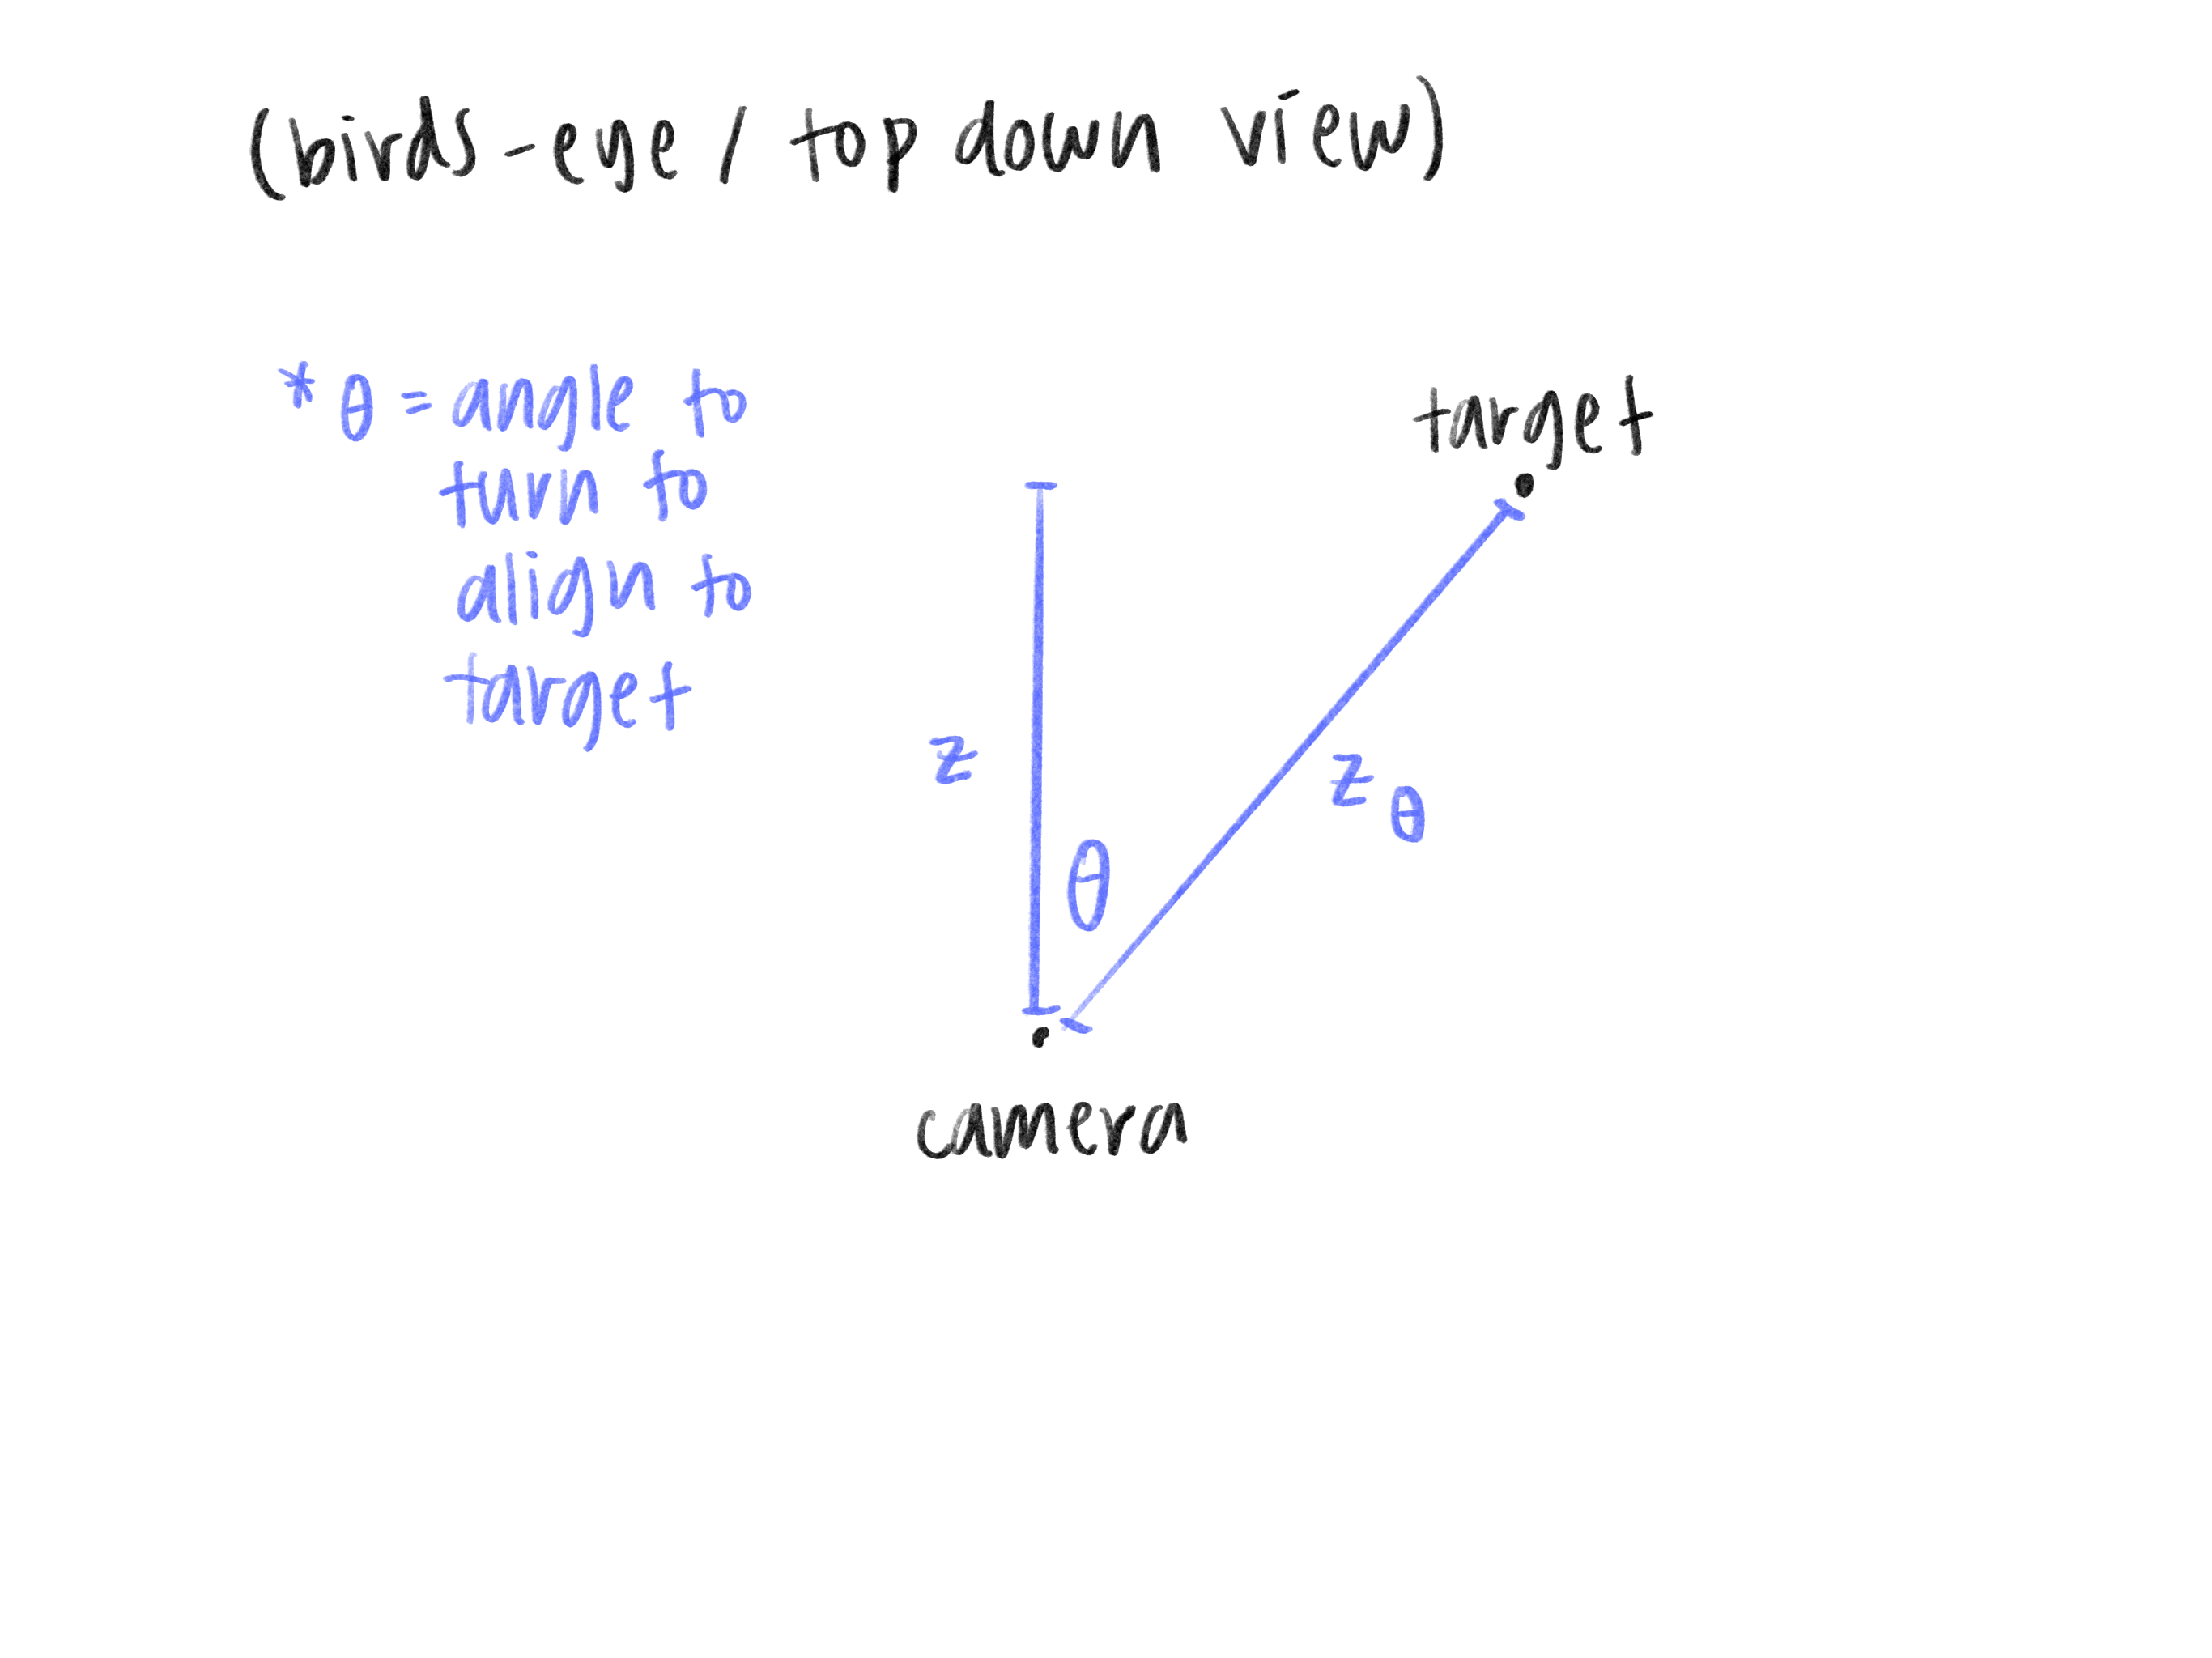 (birds-eye / top down view)
* θ = angle to
turn to
align to
target
target
z
z θ
θ
camera